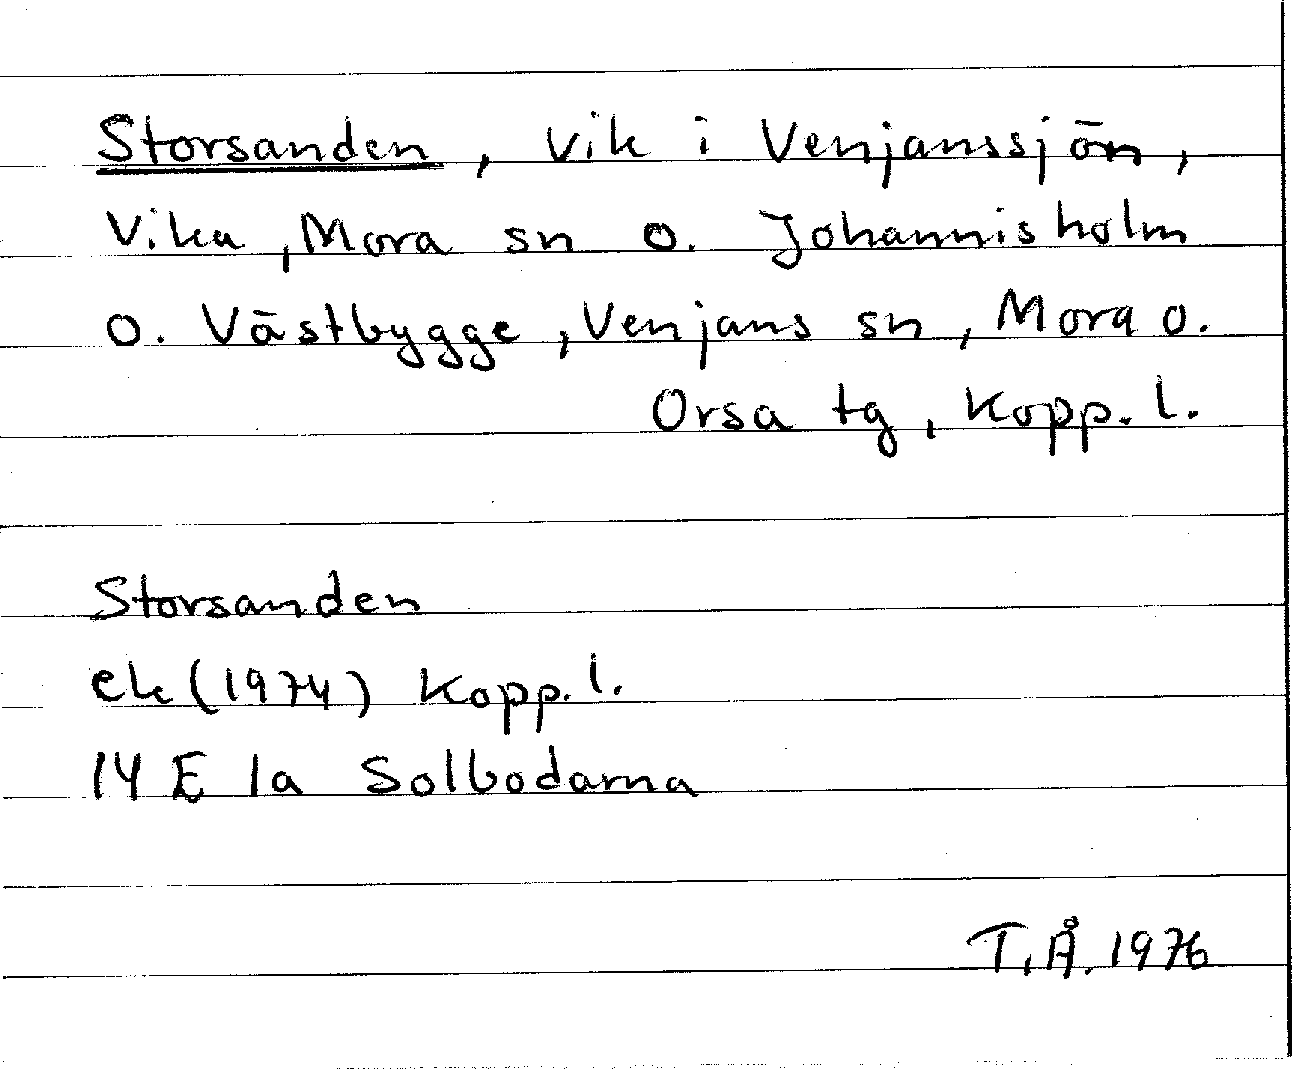 Storsanden, vik i Venjanssjön,
Vika, Mora sn o. Johannisholm
o. Västbygge, Venjans sn, Mora o.
Orsa tg, Kopp. l.
Storsanden
ek (1974) Kopp. l.
14 E 1a Solbodarna
T.Å. 1976